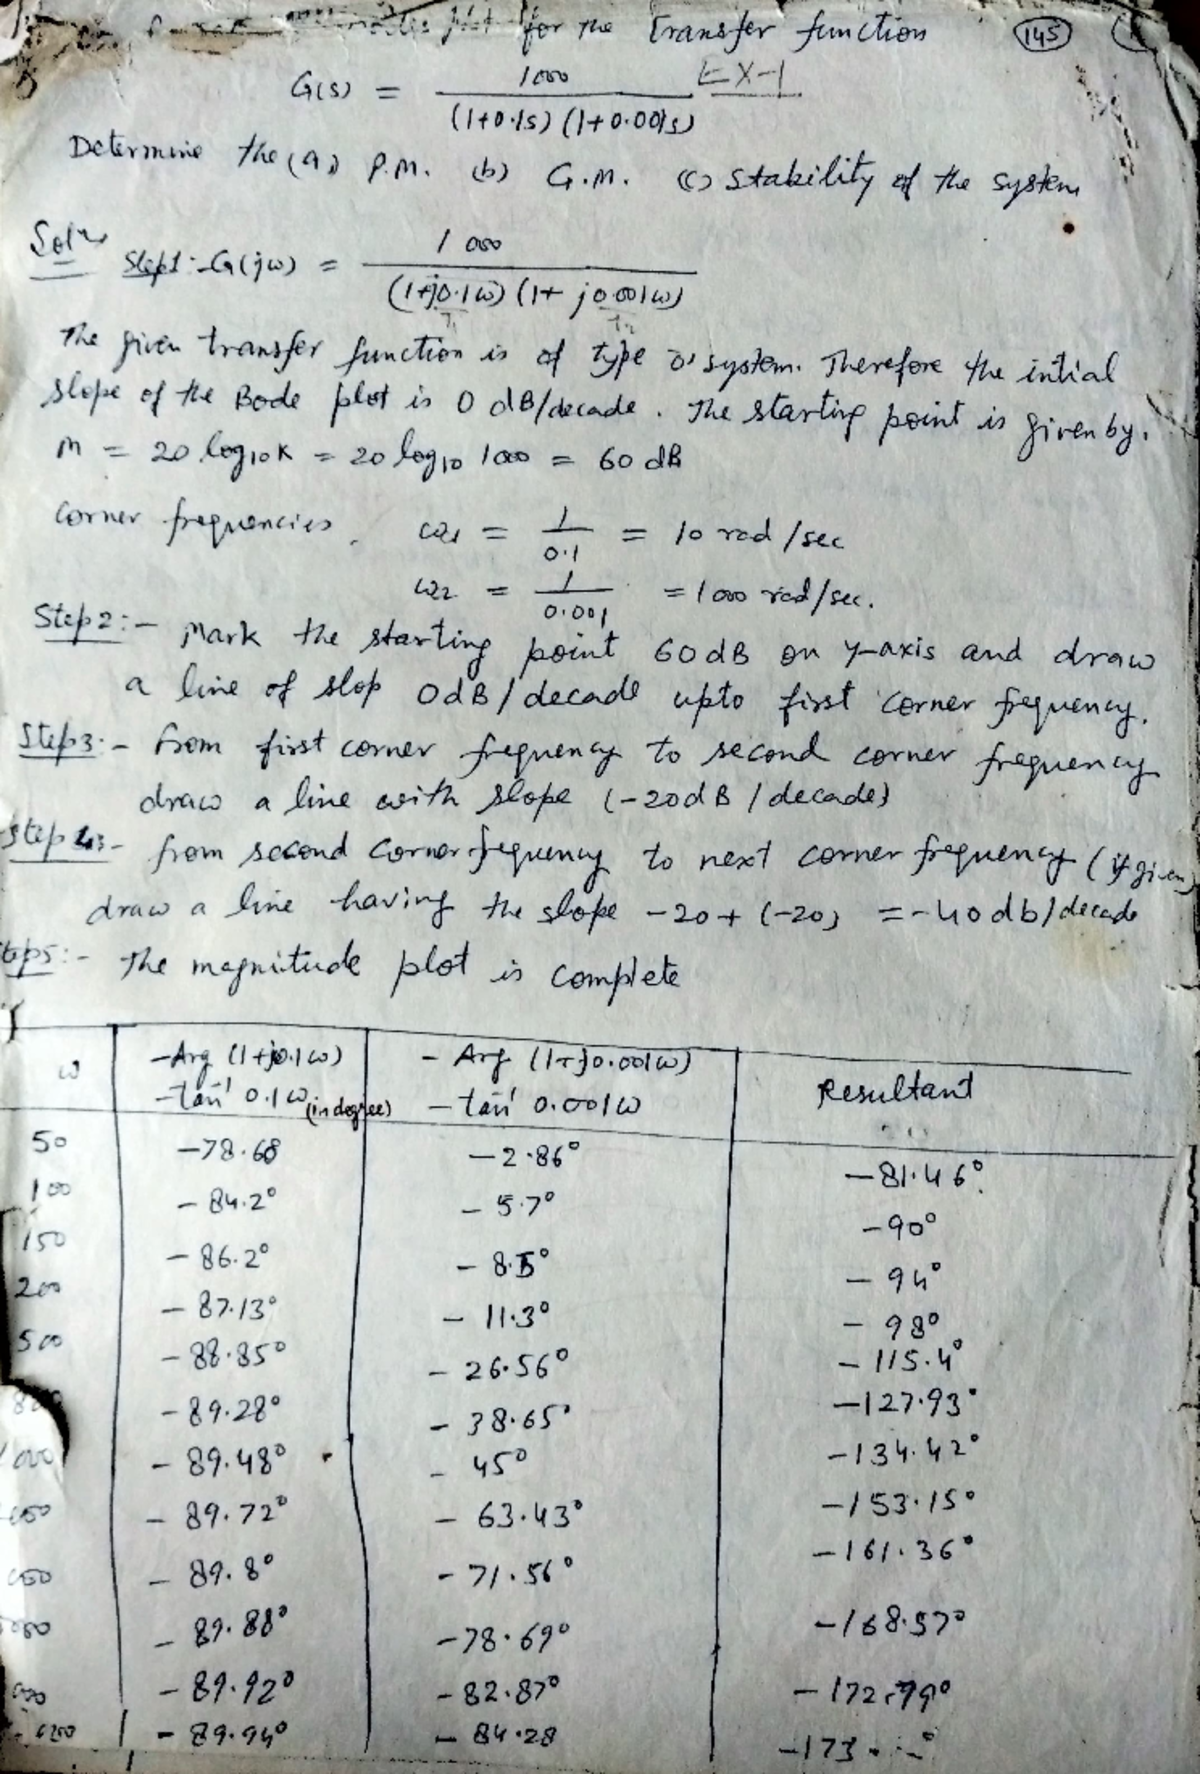 for the Transfer function 145
G(s) = 1000 / (1+0.1s) (1+0.001s) EX-1
Determine the (a) P.M. (b) G.M. (c) Stability of the system
Soln Step1:- G(jω) = 1000 / (1+j0.1ω) (1+ j0.001ω)
T1 T2
The given transfer function is of type '0' system. Therefore the intial
slope of the Bode plot is 0 dB/decade. The starting point is given by.
M = 20 log10 K = 20 log10 1000 = 60 dB
Corner frequencies, ω1 = 1/0.1 = 10 rad/sec
ω2 = 1/0.001 = 1000 rad/sec.
Step2:- Mark the starting point 60dB on Y-axis and draw
a line of slop 0dB/decade upto first corner frequency.
Step3:- from first corner frequency to second corner frequency
draw a line with slope (-20dB/decade)
Step 4:- from second corner frequency to next corner frequency (if given)
draw a line having the slope -20+ (-20) = -40db/decade
Step5:- The magnitude plot is complete
ω -Arg (1+j0.1ω) - Arg (1+j0.001ω) Resultant
-tan⁻¹ 0.1ω (in degree) -tan⁻¹ 0.001ω
50 -78.68 -2.86° -81.46°
100 -84.2° -5.7° -90°
150 -86.2° -8.5° -94°
200 -87.13° -11.3° -98°
500 -88.85° -26.56° -115.4°
800 -89.28° -38.65° -127.93°
1000 -89.48° -45° -134.42°
-89.72° -63.43° -153.15°
-89.8° -71.56° -161.36°
-89.88° -78.69° -168.57°
-89.92° -82.87° -172.79°
-89.94° -84.28 -173